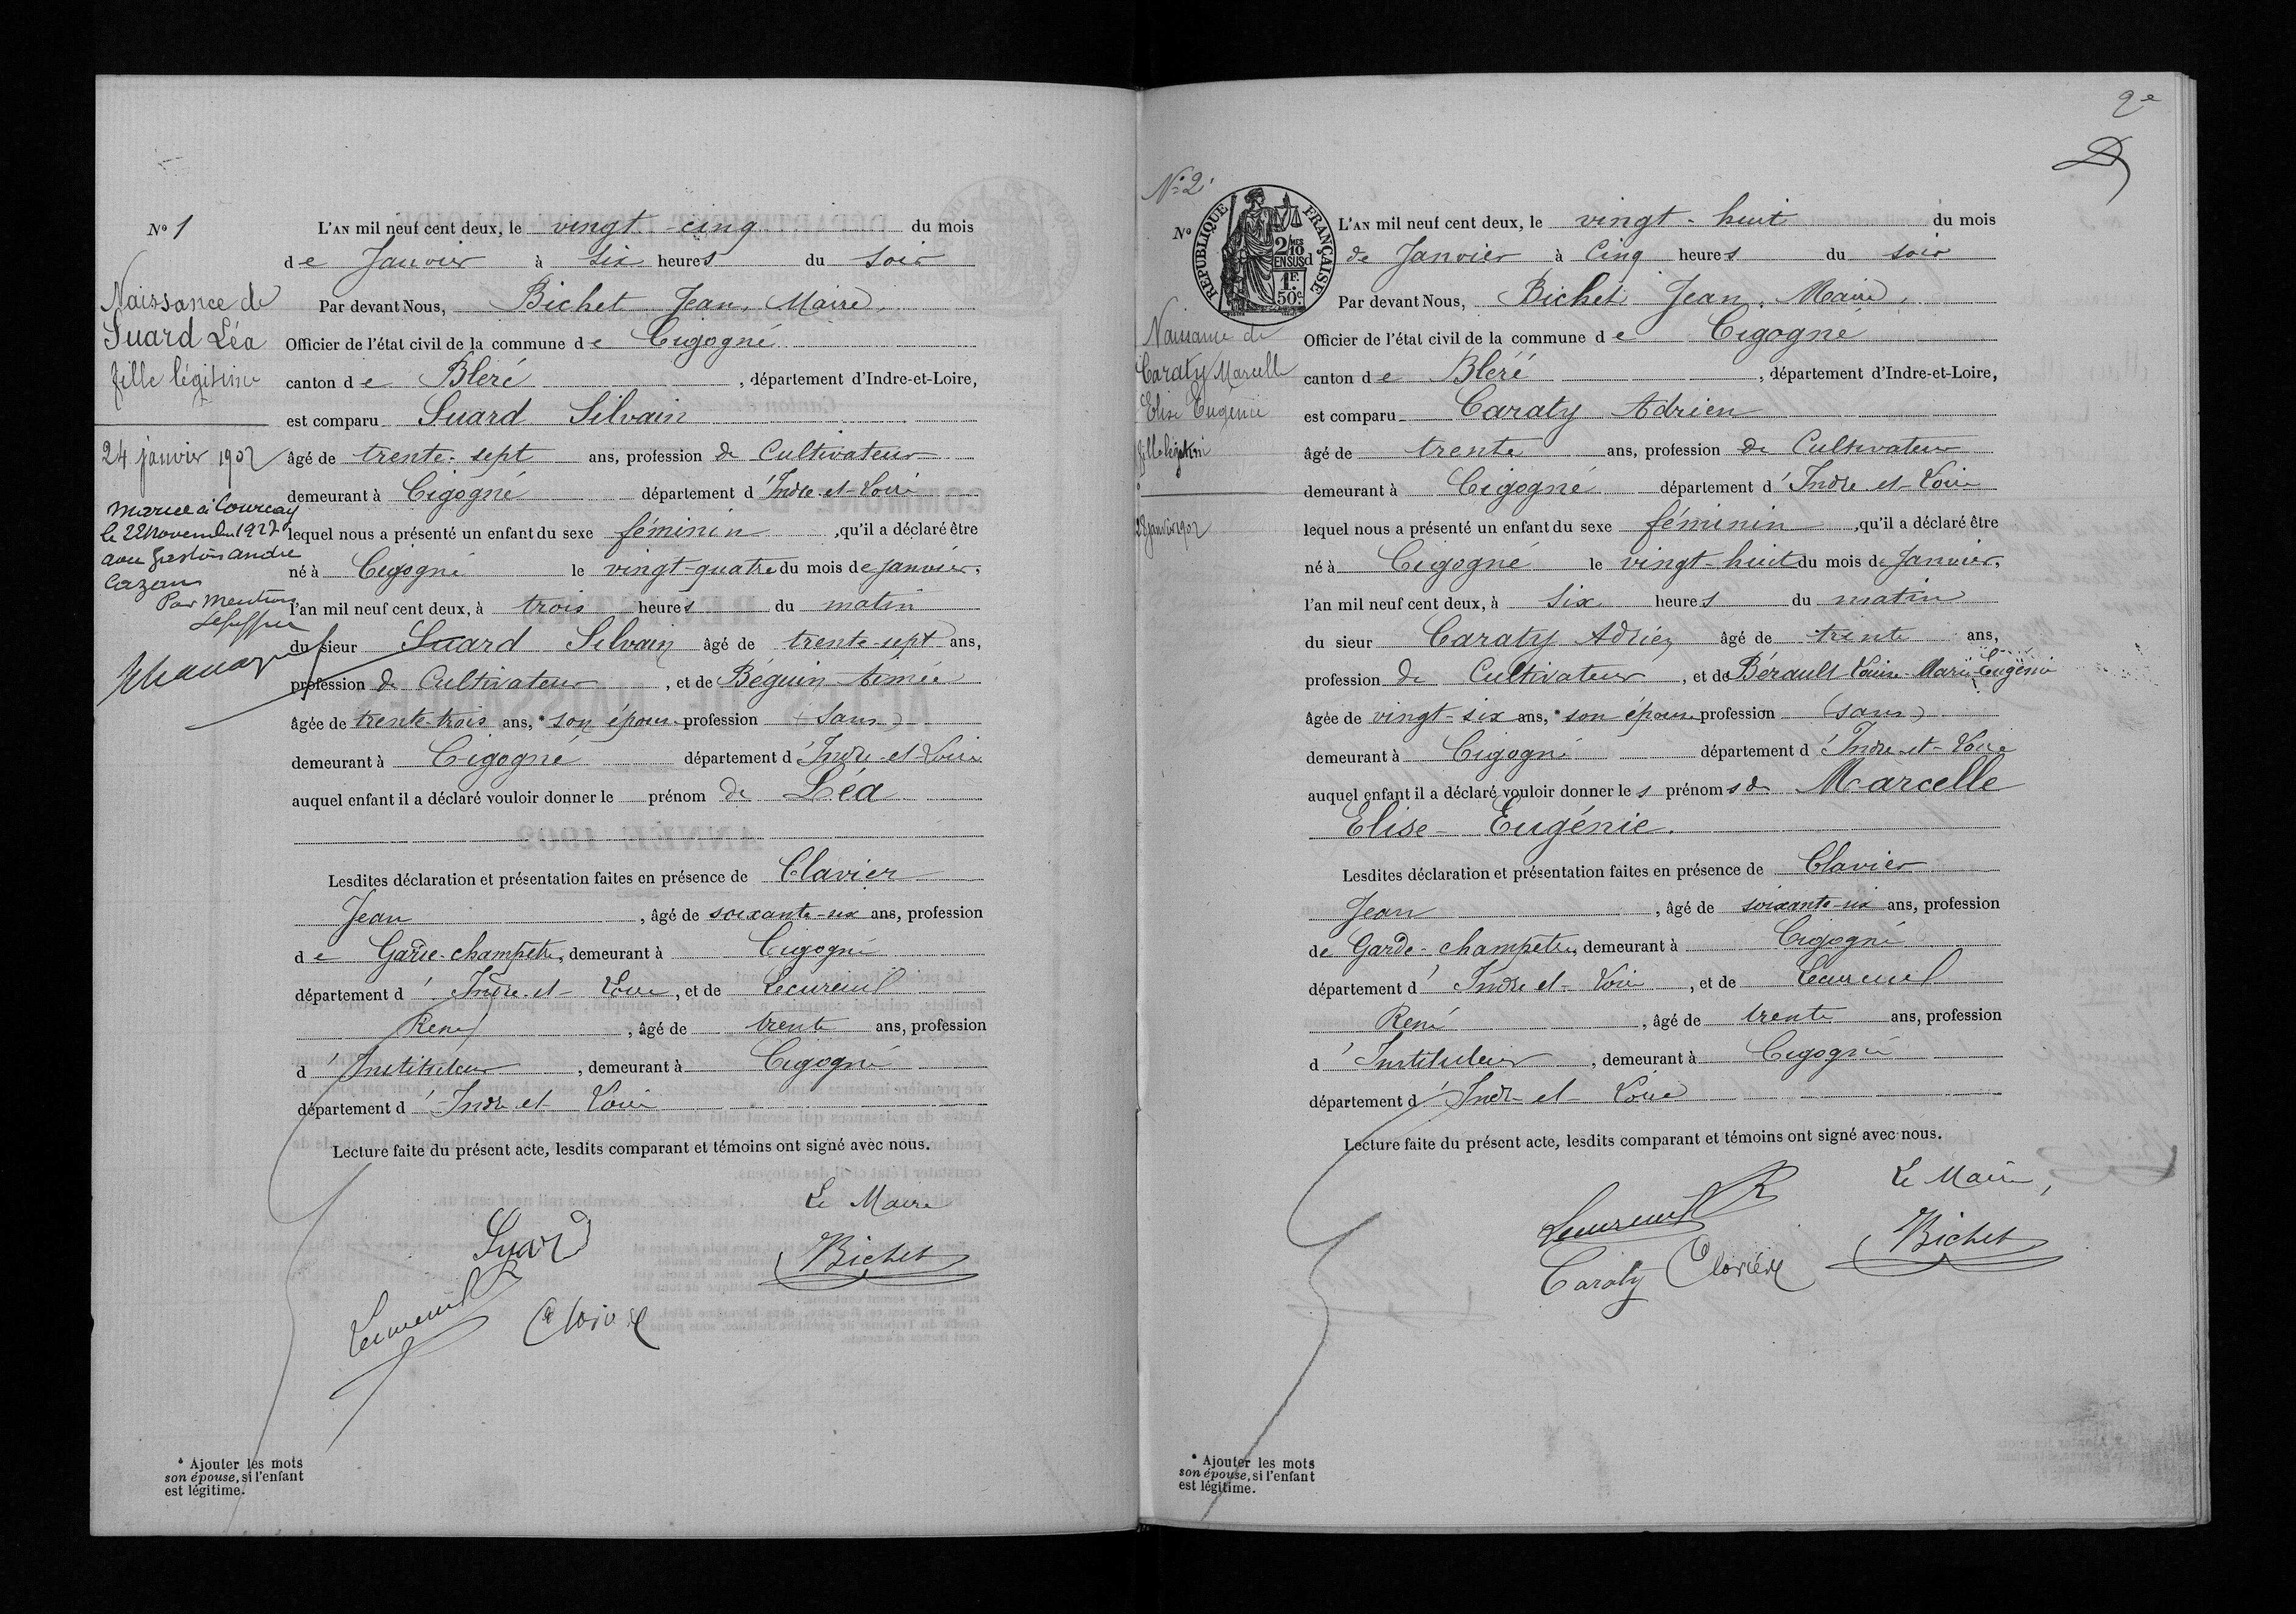 Nº 1
Naissance de
Suard Léa
fille légitime
24 janvier 1902
Mariée à Courcay
le 22 novembre 1927
avec Gaston André
Cazeau
Par Mention
L'AN mil neuf cent deux, le vingt-cinq du mois
de Janvier à six heures du soir
Par devant Nous, Bichet Jean, Maire,
Officier de l'état civil de la commune de Cigogné
canton de Bléré, département d'Indre-et-Loire,
est comparu Suard Silvain
âgé de trente-sept ans, profession de Cultivateur
demeurant à Cigogné département d'Indre-et-Loire
lequel nous a présenté un enfant du sexe féminin, qu'il a déclaré être
né à Cigogné le vingt-quatre du mois de janvier,
l'an mil neuf cent deux, à trois heures du matin
du sieur Suard Silvain âgé de trente-sept ans,
profession de Cultivateur, et de Béguin Aimée
âgée de trente-trois ans, * son épouse profession (sans)
demeurant à Cigogné département d'Indre-et-Loire
auquel enfant il a déclaré vouloir donner le prénom de Léa
Lesdites déclaration et présentation faites en présence de Clavier
Jean, âgé de soixante-six ans, profession
de Garde-champêtre, demeurant à Cigogné
département d'Indre-et-Loire, et de Lecureuil
René, âgé de trente ans, profession
d'Instituteur, demeurant à Cigogné
département d'Indre-et-Loire
Lecture faite du présent acte, lesdits comparant et témoins ont signé avec nous.
Le Maire
Suard
Bichet
Lecureuil
* Ajouter les mots
son épouse, si l'enfant
est légitime.
2e
Nº 2
Nº
RÉPUBLIQUE FRANÇAISE
2/10 MES
EN SUS
1F.
50c
Naissance de
Caraty Marcelle
Elise Eugénie
fille légitime
28 janvier 1902
L'AN mil neuf cent deux, le vingt-huit du mois
d de Janvier à Cinq heures du soir
Par devant Nous, Bichet Jean, Maire,
Officier de l'état civil de la commune de Cigogné
canton de Bléré, département d'Indre-et-Loire,
est comparu Caraty Adrien
âgé de trente ans, profession de Cultivateur
demeurant à Cigogné département d'Indre-et-Loire
lequel nous a présenté un enfant du sexe féminin, qu'il a déclaré être
né à Cigogné le vingt-huit du mois de Janvier,
l'an mil neuf cent deux, à six heures du matin
du sieur Caraty Adrien âgé de trente ans,
profession de Cultivateur, et de Bérault Louise Marie Eugénie
âgée de vingt-six ans, * son épouse profession (sans)
demeurant à Cigogné département d'Indre-et-Loire
auquel enfant il a déclaré vouloir donner les prénoms de Marcelle
Elise-Eugénie.
Lesdites déclaration et présentation faites en présence de Clavier
Jean, âgé de soixante-six ans, profession
de Garde-champêtre, demeurant à Cigogné
département d'Indre et-Loire, et de Lecureuil
René, âgé de trente ans, profession
d'Instituteur, demeurant à Cigogné
département d'Indre-et-Loire
Lecture faite du présent acte, lesdits comparant et témoins ont signé avec nous.
Le Maire,
Lecureuil
Bichet
Caraty
* Ajouter les mots
son épouse, si l'enfant
est légitime.